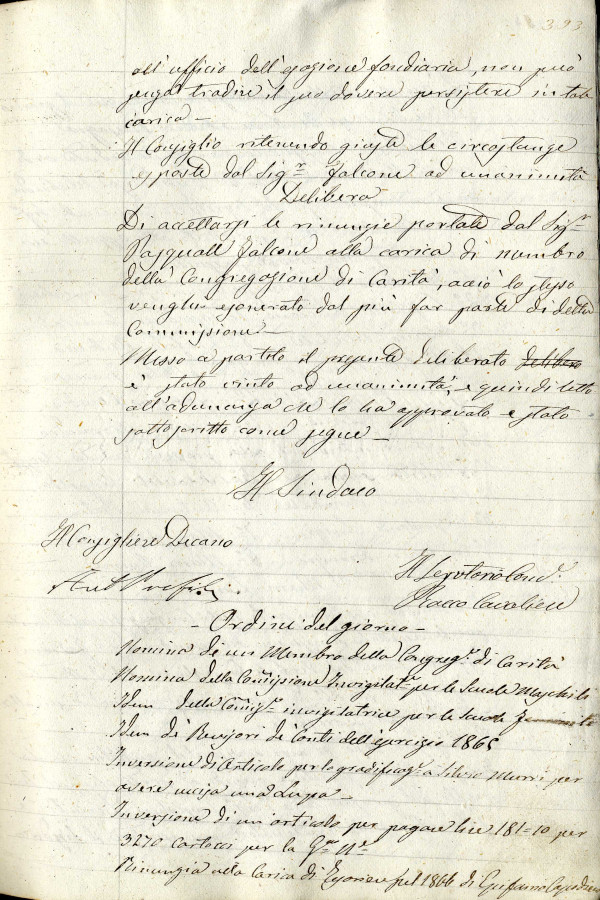 393
all'ufficio dell'esazione fondiaria, non può
senza tradire il suo dovere persistere in tale
carica —
Il Consiglio ritenendo giuste le circostanze
esposte dal Sigr. Falcone ad unanimità
Delibera
Di accettarsi le rinunzie portate dal Sigr.
Pasquale Falcone alla carica di membro
della Congregazione di Carità, acciò lo stesso
venghi esonerato dal più far parte di detta
Commissione —
Messo a partito il presente deliberato delibera
è stato vinto ad unanimità, e quindi letto
all'adunanza che lo ha approvato e stato
sottoscritto come segue —
Il Sindaco
Il Consigliere Decano
Il Segretario Comle.
Rocco Cavaliere
— Ordini del giorno —
Nomina di un Membro della Congrege. di Carità
Nomina della Commissione Invigilatre. per le Scuole Maschili
Idem della Commisse. invigilatrice per le Scuole
Idem de' Revisori de' Conti dell'esercizio 1865
Inversione di Articolo per la gratificaze. a Silvio Murri per
avere uccisa una Lupa —
Inversione di un'articolo per pagare lire 181=10 per
3270 cartocci per la Gra. Nle.
Rinunzia alla carica di Esattore pel 1866 di Epifanio